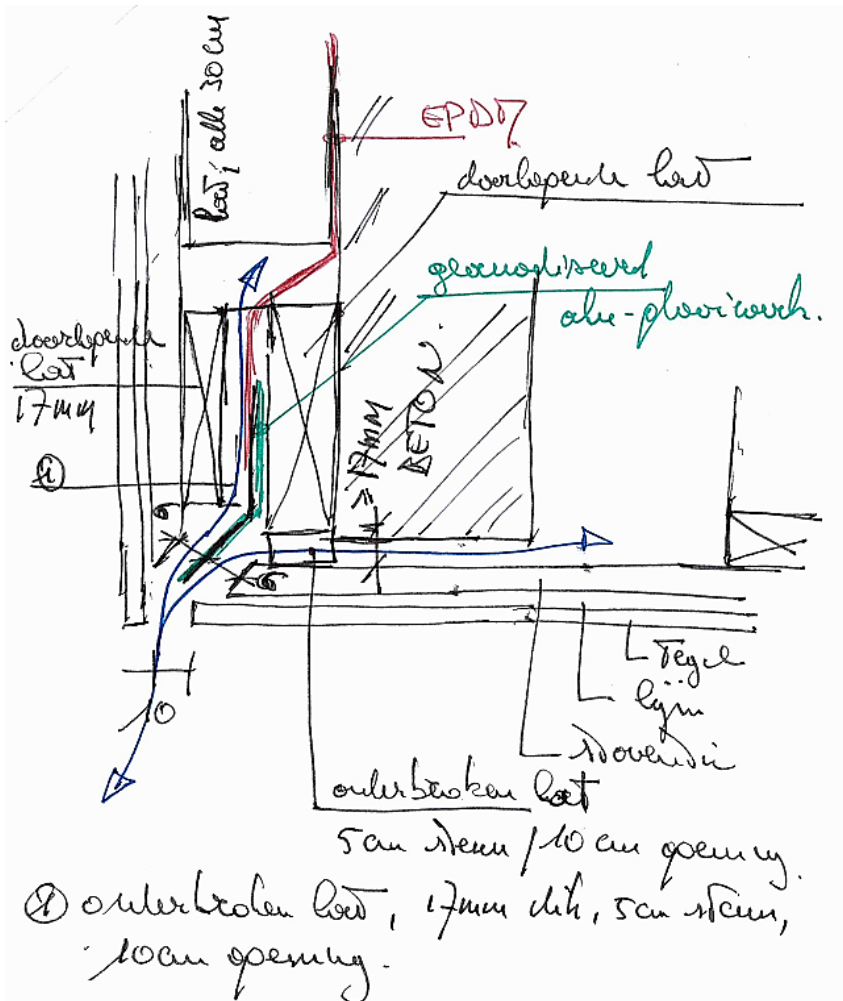 lat alle 30 cm
EPDM
doorlopende lat
geanodiseerd
alu-plooiwerk.
doorlopende
lat
17mm
≥ 17mm
BETON
①
6
6
10
Tegel
lijm
onderbroken lat
5cm steun / 10 cm opening.
① onderbroken lat, 17mm dik, 5cm steun,
10cm opening.